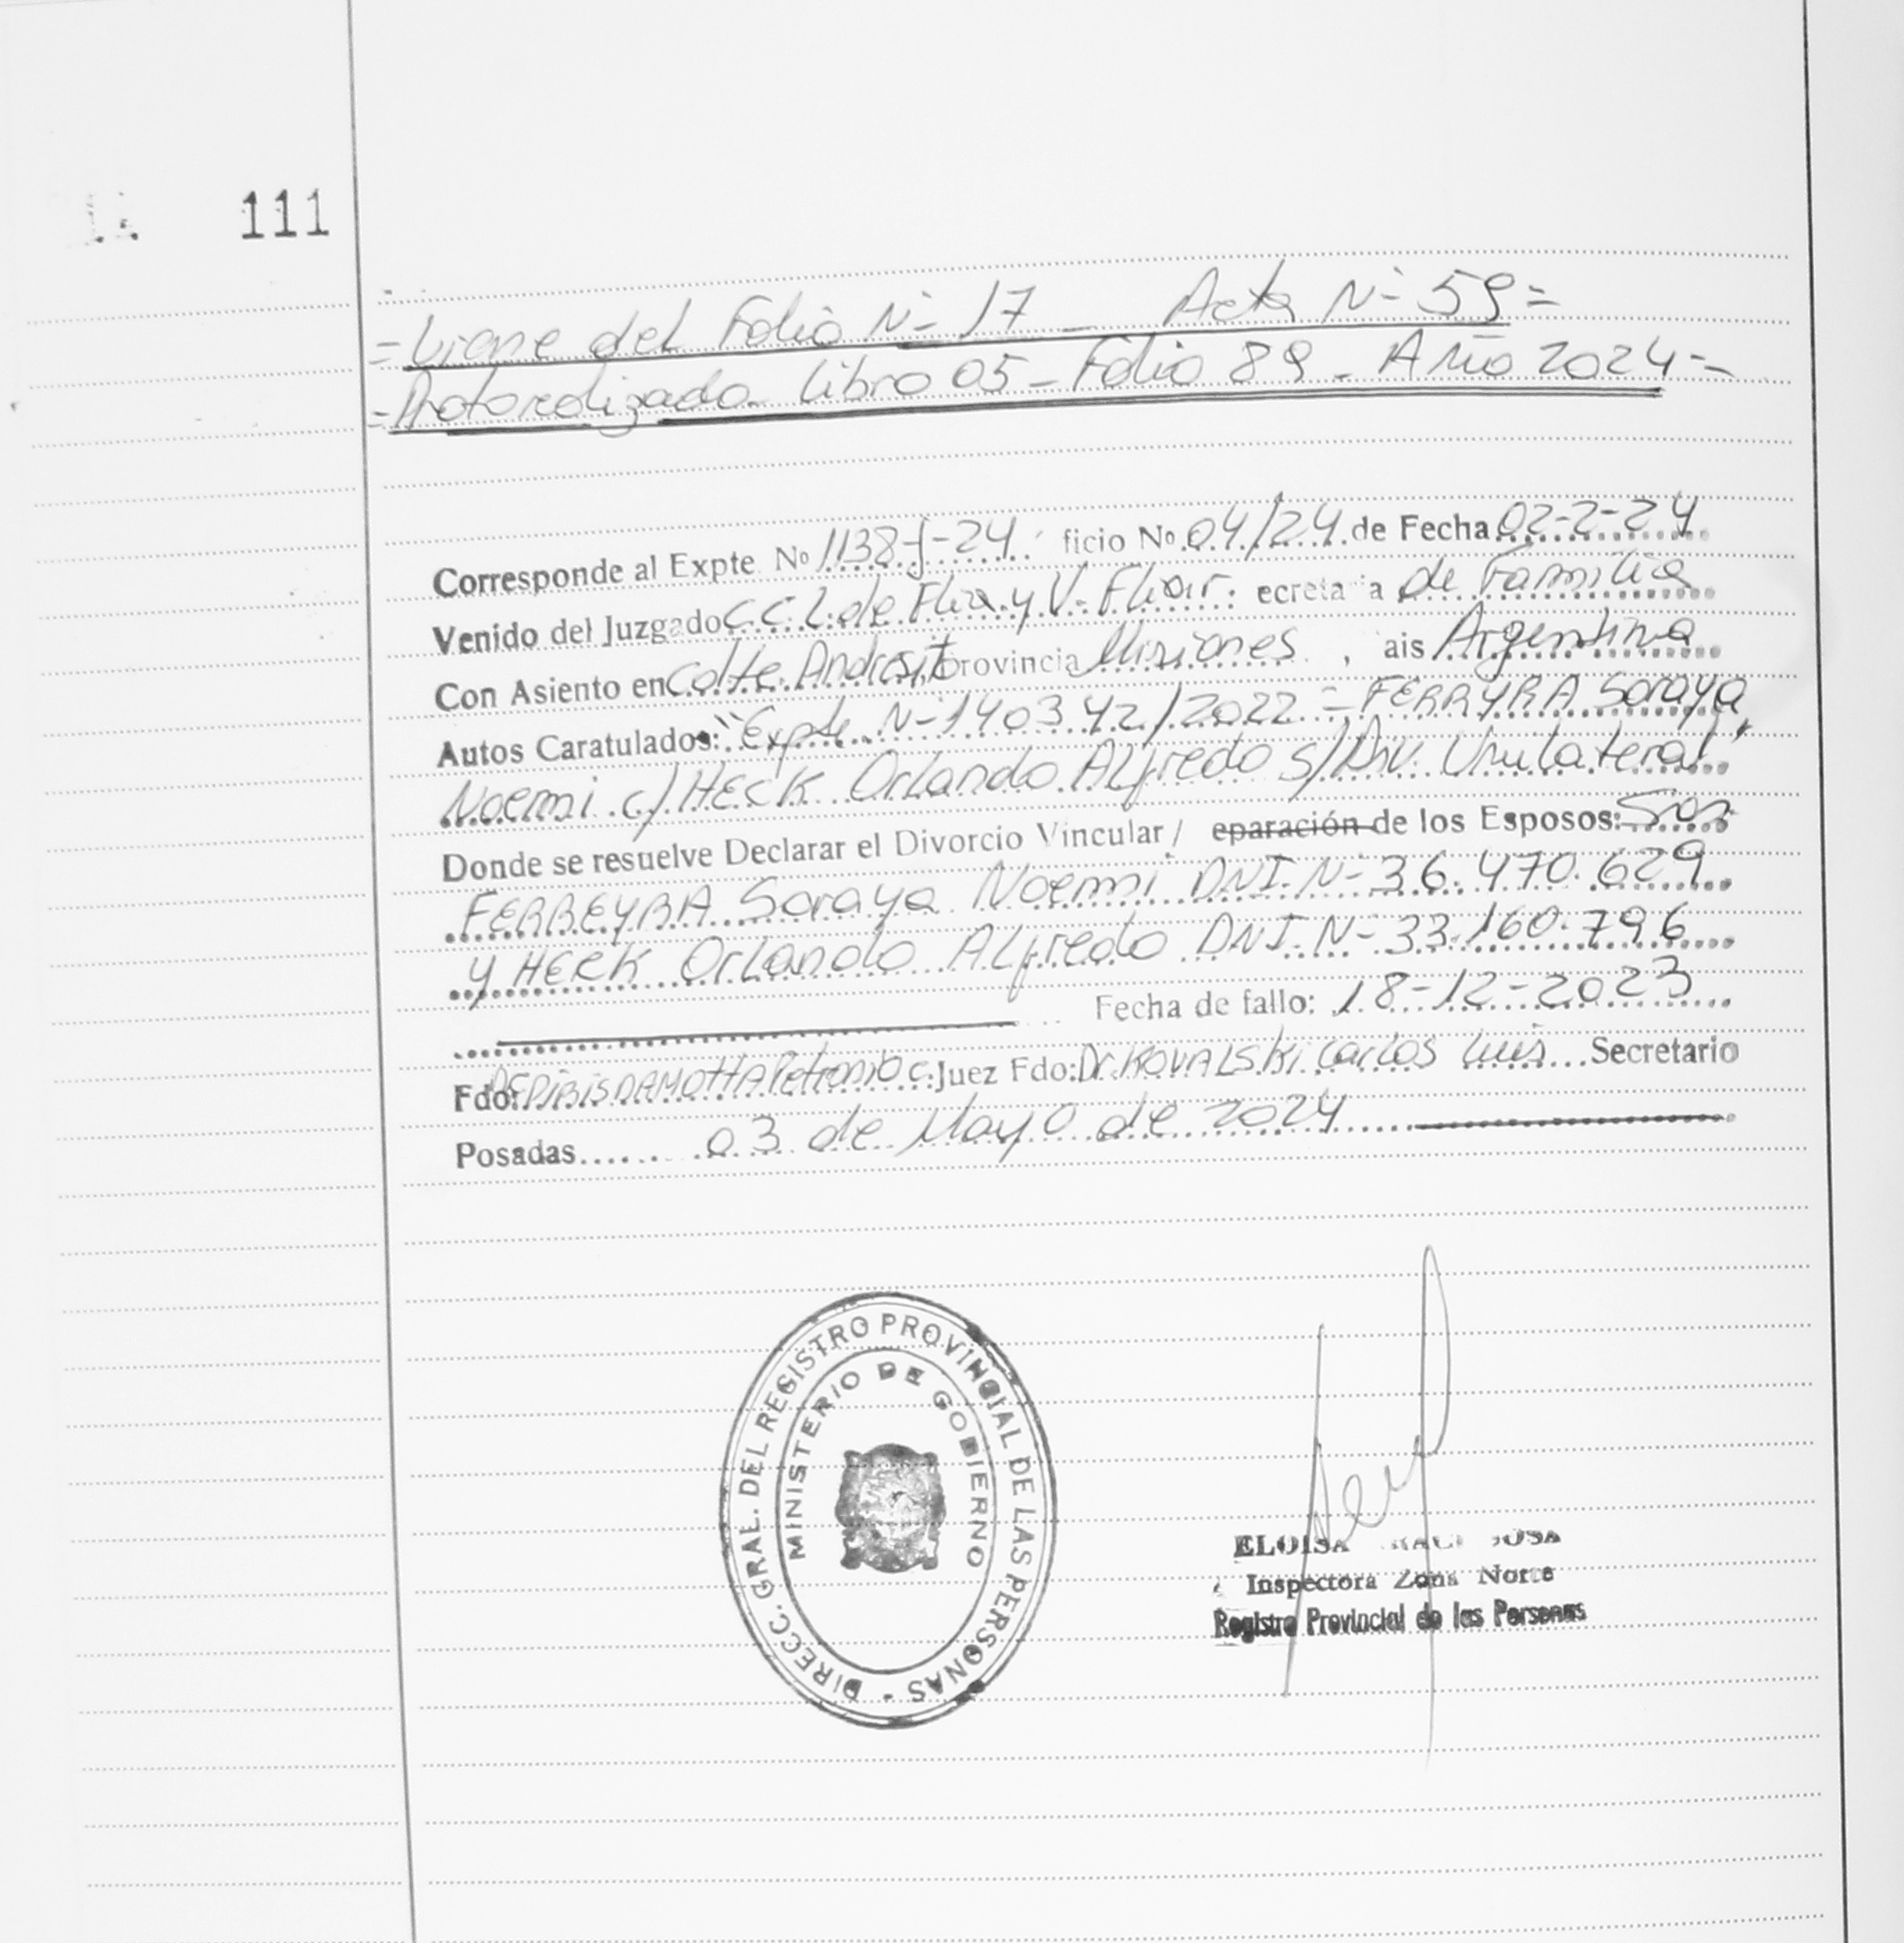 111
=Viene del Folio N- 17 - Acta N- 59=
=Protocolizado Libro 05 - Folio 89 - Año 2024=
Corresponde al Expte Nº 1138-J-24. ficio Nº 04/24 de Fecha 02-2-24
Venido del Juzgado C.C.L. de Flia. y V. Fliar. ecretaria de Familia
Con Asiento en Cdte. Andresito rovincia Misiones, ais Argentina
Autos Caratulados: "Expte. N-140342/2022 - FERRYRA Soraya
Noemi c/ HECK Orlando Alfredo s/Div. Unilateral"
Donde se resuelve Declarar el Divorcio Vincular / eparación de los Esposos: Sres
FERREYRA Soraya Noemi DNI. N- 36.470.629
y HECK Orlando Alfredo DNI. N- 33.160.796
Fecha de fallo: 18-12-2023
Fdo: DAMOTTA Petronio C. Juez Fdo: Dr. KOVALSKI Carlos Luis Secretario
Posadas 03 de Mayo de 2024
DIRECC. GRAL. DEL REGISTRO PROVINCIAL DE LAS PERSONAS -
MINISTERIO DE GOBIERNO
ELOISA
Inspectora Zona Norte
Registro Provincial de las Personas